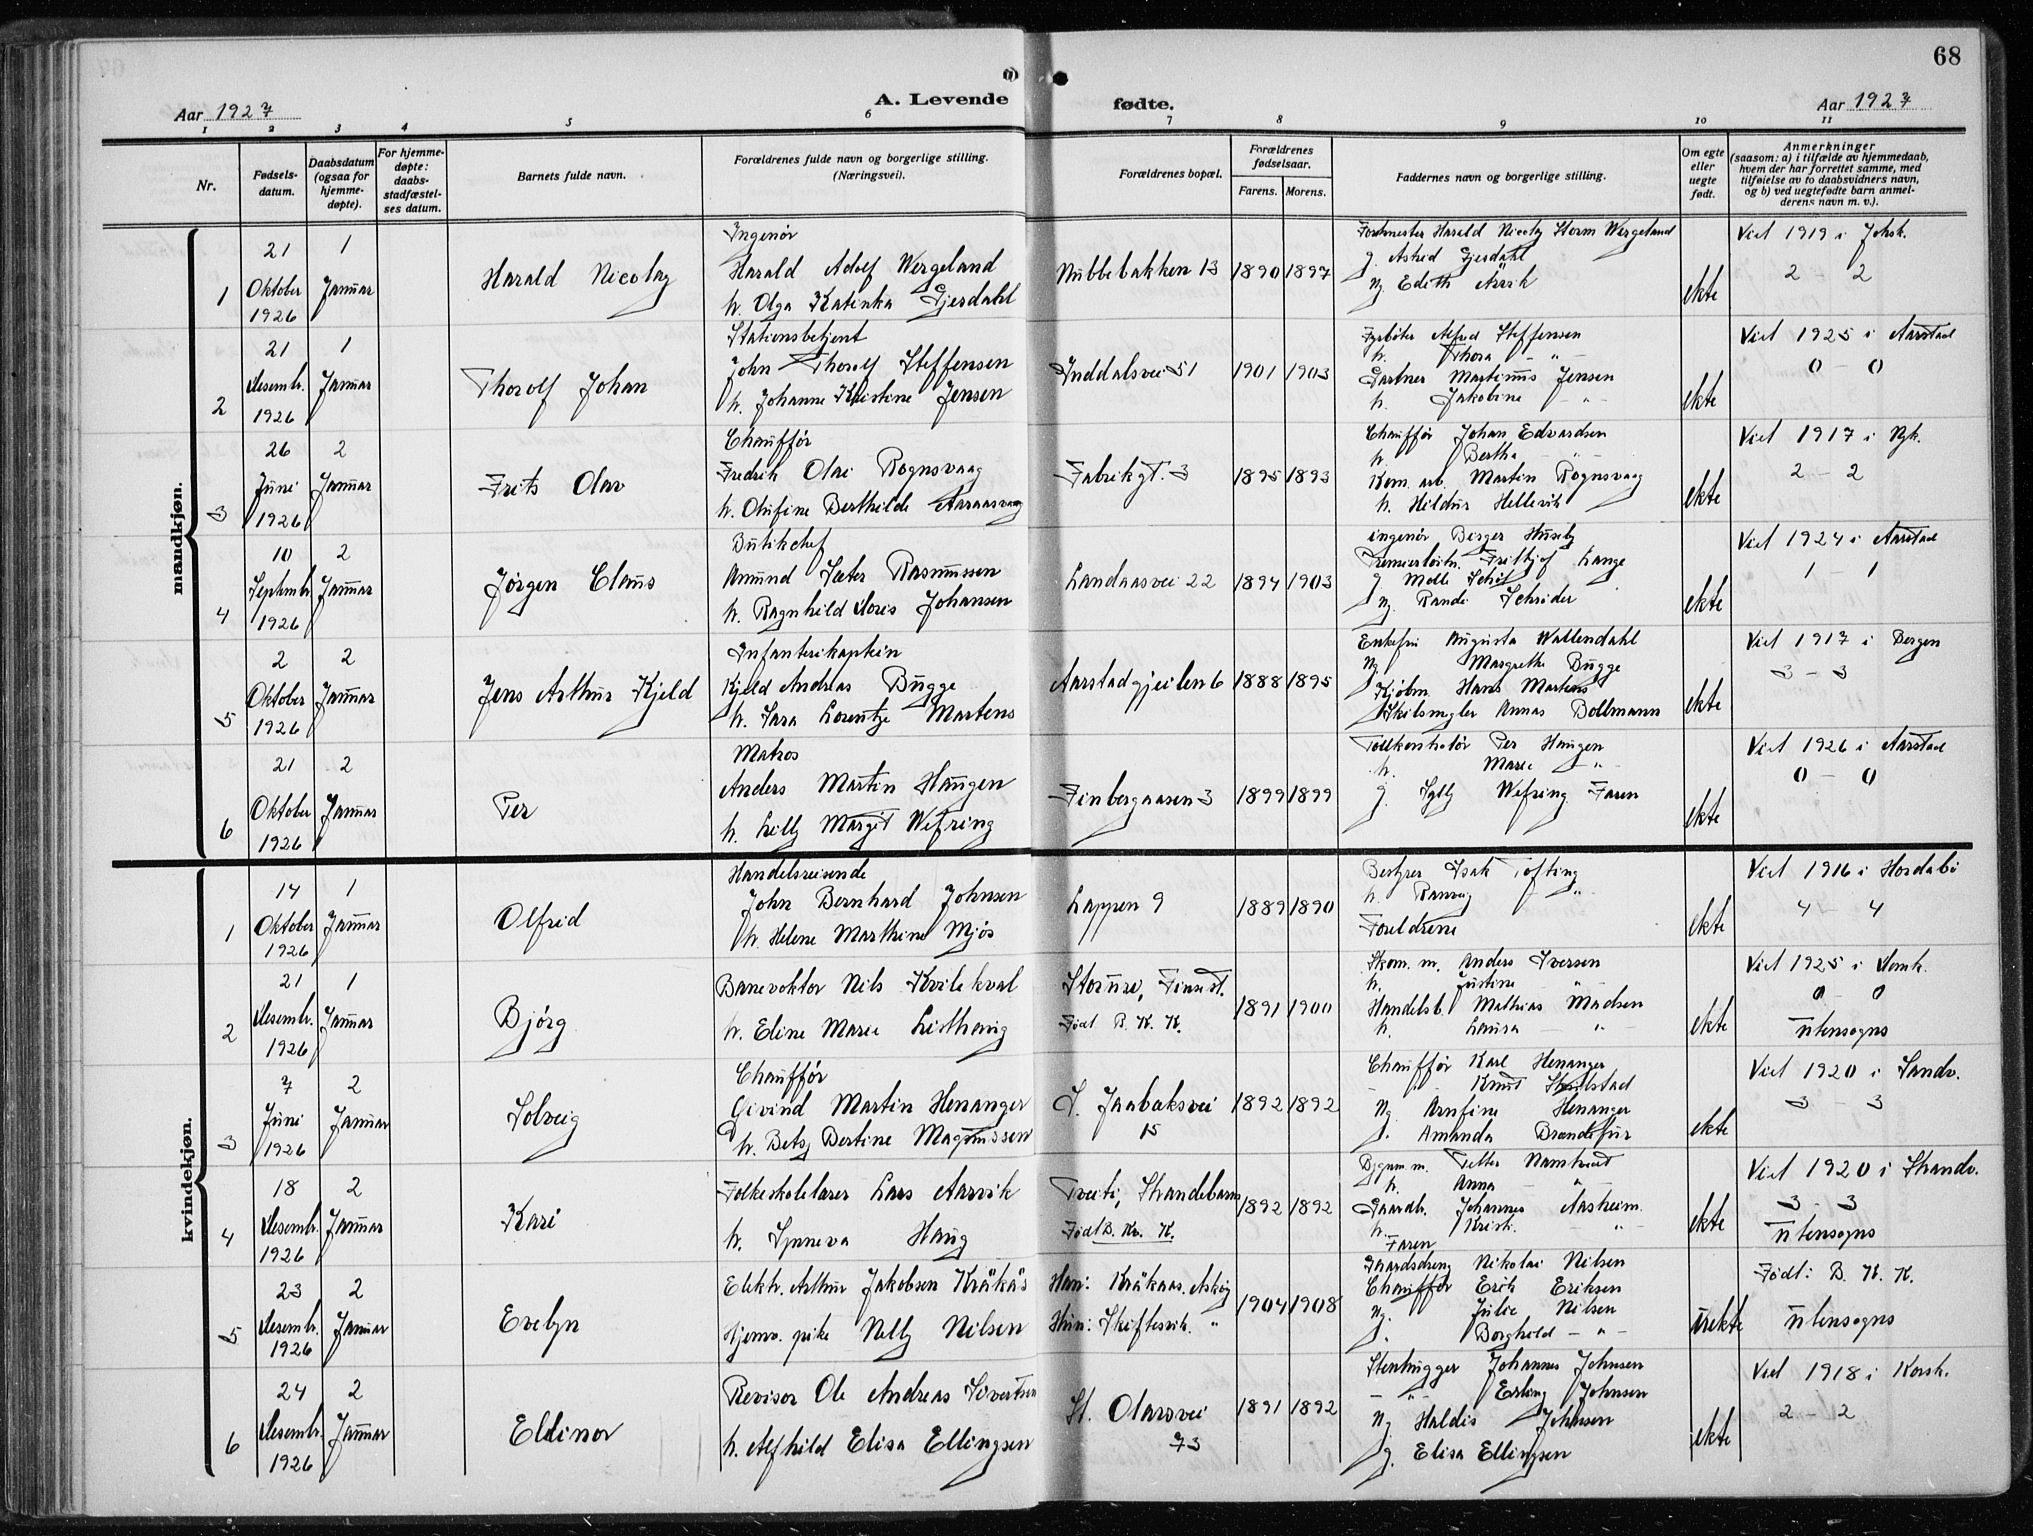 68
A. Levende fødte.
Aar 1927
Aar 1927
1 2 3 4 5 6 7 8 9 10 11
Nr.
Fødsels-
datum.
Daabsdatum
(ogsaa for
hjemme-
døpte).
For hjemme-
døpte:
daabs-
stadfæstel-
ses datum.
Barnets fulde navn.
Forældrenes fulde navn og borgerlige stilling.
(Næringsvei).
Forældrenes bopæl.
Forældrenes
fødselsaar.
Farens. Morens.
Faddernes navn og borgerlige stilling.
Om egte
eller
uegte
født.
Anmerkninger
(saasom: a) i tilfælde av hjemmedaab,
hvem der har forrettet samme, med
tilføielse av to daabsvidners navn,
og b) ved uegtefødte barn anmel-
derens navn m. v.).
mandkjøn.
1
21
Oktober
1926
1
Januar
Harald Nicolay
Ingenør
Harald Adolf Wergeland
h. Olga Katinka Gjesdahl
Nubbebakken 13
1890 1897
Harald Nicolay Storm Wergeland
g. Astrid Gjesdahl
ug. Edith
ekte
Viet 1919 i Johsk.
2 – 2
2
21
Desembr.
1926
1
Januar
Thorolf Johan
Stationsbetjent
John Thorolf Steffensen
h. Johanne Kristine Jensen
Inddalsvei 51
1901 1903
Fyrbøter Alfred Steffensen
h. Thora – " –
Gartner Martinus Jensen
h. Jakobine – " –
ekte
Viet 1925 i Aarstad
0 – 0
3
26
Juni
1926
2
Januar
Frits Olav
Chauffør
Fredrik Olai Rognsvaag
h. Olufine Berthilde
Fabrikgt. 3
1895 1893
Chauffør Johan Edvardsen
h. Bertha – " –
Kom. arb. Martin Rognsvaag
h. Hildur Hellevik
ekte
Viet 1917 i Nyk.
2 – 2
4
10
Septembr.
1926
2
Januar
Jørgen Claus
Butikchef
Amund Sæter Rasmussen
h. Ragnhild Doris Johansen
Landaasvei 22
1894 1903
ingenør Birger Huseby
Premierløitn. Fridtjof Lange
g. Molli
ug. Randi Schrøder
ekte
Viet 1924 i Aarstad
1 – 1
5
2
Oktober
1926
2
Januar
Jens Arthur Kjeld
Infanterikaptein
Kjeld Andreas Bugge
h. Sara Lorentze Martens
Aarstadgjeilen 6
1888 1895
Enkefru Augusta Wallendahl
ug. Margrethe Bugge
Kjøbm. Hans Martens
Skibsmegler Annas Dollmann
ekte
Viet 1917 i Bergen
3 – 3
6
21
Oktober
1926
2
Januar
Per
Matros
Anders Martin Haugen
h. Lilly Margit Wefring
Finbergaasen 3
1899 1899
Tollkontrolør Per Haugen
h. Marie – " –
g. Sylly Wefring Faren
ekte
Viet 1926 i Aarstad
0 – 0
kvindekjøn.
1
14
Oktober
1926
1
Januar
Olfrid
Handelsreisende
John Bernhard Johnsen
h. Helene Marthine Mjøs
Lappen 9
1889 1890
Bestyrer Isak Tofting
h. Ranveig – " –
Foreldrene
ekte
Viet 1916 i Hordabø
4 – 4
2
21
Desembr.
1926
1
Januar
Bjørg
Banevokter Nils Kvilekval
h. Eline Marie Listhaug
Storuri, Finset.
Født B. K. K.
1891 1900
Skom. m. Anders Iversen
h. Justine – " –
Handelsb. Mathias Madsen
h. Laura – " –
ekte
Viet 1925 i Domk.
0 – 0
utensogns
3
7
Juni
1926
2
Januar
Solveig
Chauffør
Eivind Martin Henanger
h. Betsy Bertine Magnussen
J. Jaabæksvei
15
1892 1892
Chauffør Karl Henanger
– " – Knut
ug. Arnfine Henanger
g. Amanda
ekte
Viet 1920 i Sandv.
3 – 3
4
18
Desembr.
1926
2
Januar
Kari
Folkeskolelærer Lars Aarvik
h. Synneva Haug
Tveite, Strandebarm
Født B. Kv. K.
1892 1892
Bygnm. m. Petter
h. Anna – " –
Gaardbr. Johannes Aasheim
h. Krist. – " –
Faren
ekte
Viet 1920 i Strandv.
3 – 3
utensogns
5
23
Desembr.
1926
2
Januar
Evelyn
Elektr. Arthur Jakobsen Kråkås
Hjemv. pike Nelly Nilsen
Han: Kråkaas. Askøy
Hun: Skiftesvik. "
1904 1908
Gaardsdreng Nikolai Nilsen
Chauffør Erik Eriksen
ug. Julie Nilsen
" Borghild – " –
uekte
Født: B. K. K.
utensogns
6
24
Desembr.
1926
2
Januar
Eldinor
Revisor Ole Andreas Sivertsen
h. Alfhild Elisa Ellingsen
St. Olavsvei
73
1891 1892
Stenhugger Johannes Johnsen
– " – Erling Johnsen
ug. Haldis Johnsen
g. Elisa Ellingsen
ekte
Viet 1918 i Korsk.
2 – 2